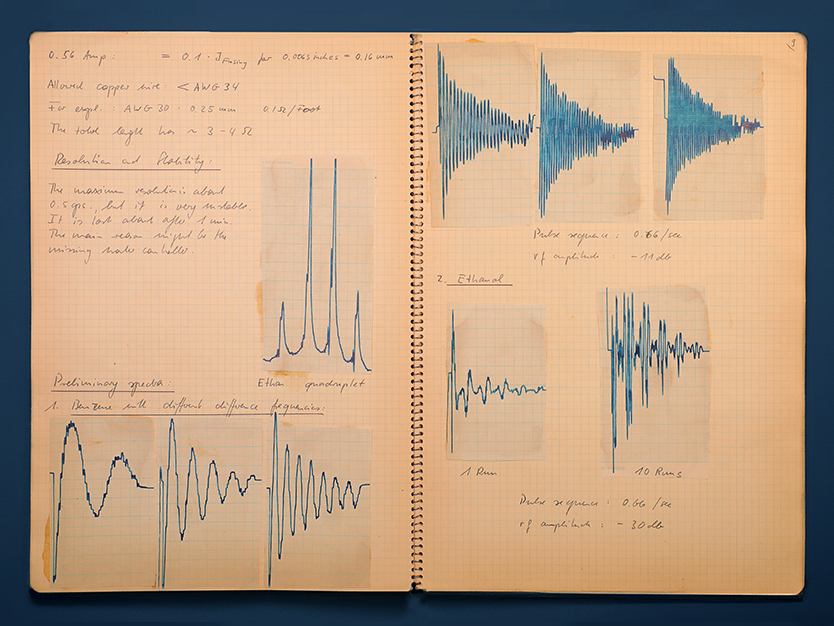 0.56 Amp : = 0.1 · I Fusing for 0.0063 inches = 0.16 mm
Allowed copper wire < AWG 34
: AWG 30 · 0.25 mm 0.1 Ω/Foot
The total length has ~ 3 - 4 Ω
Resolution and Stability :
The maximum resolution is about
0.5 cps, but it is very unstable.
It is lost about after 1 min.
The main reason might be the
missing water controller.
Preliminary spectra :
Ethan quadruplet
1. Benzene with different difference frequencies :
Pulse sequence : 0.66 /sec
rf amplitude : - 11 db
2. Ethanol
1 Run
10 Runs
Pulse sequence : 0.66 /sec
rf amplitude : - 30 db